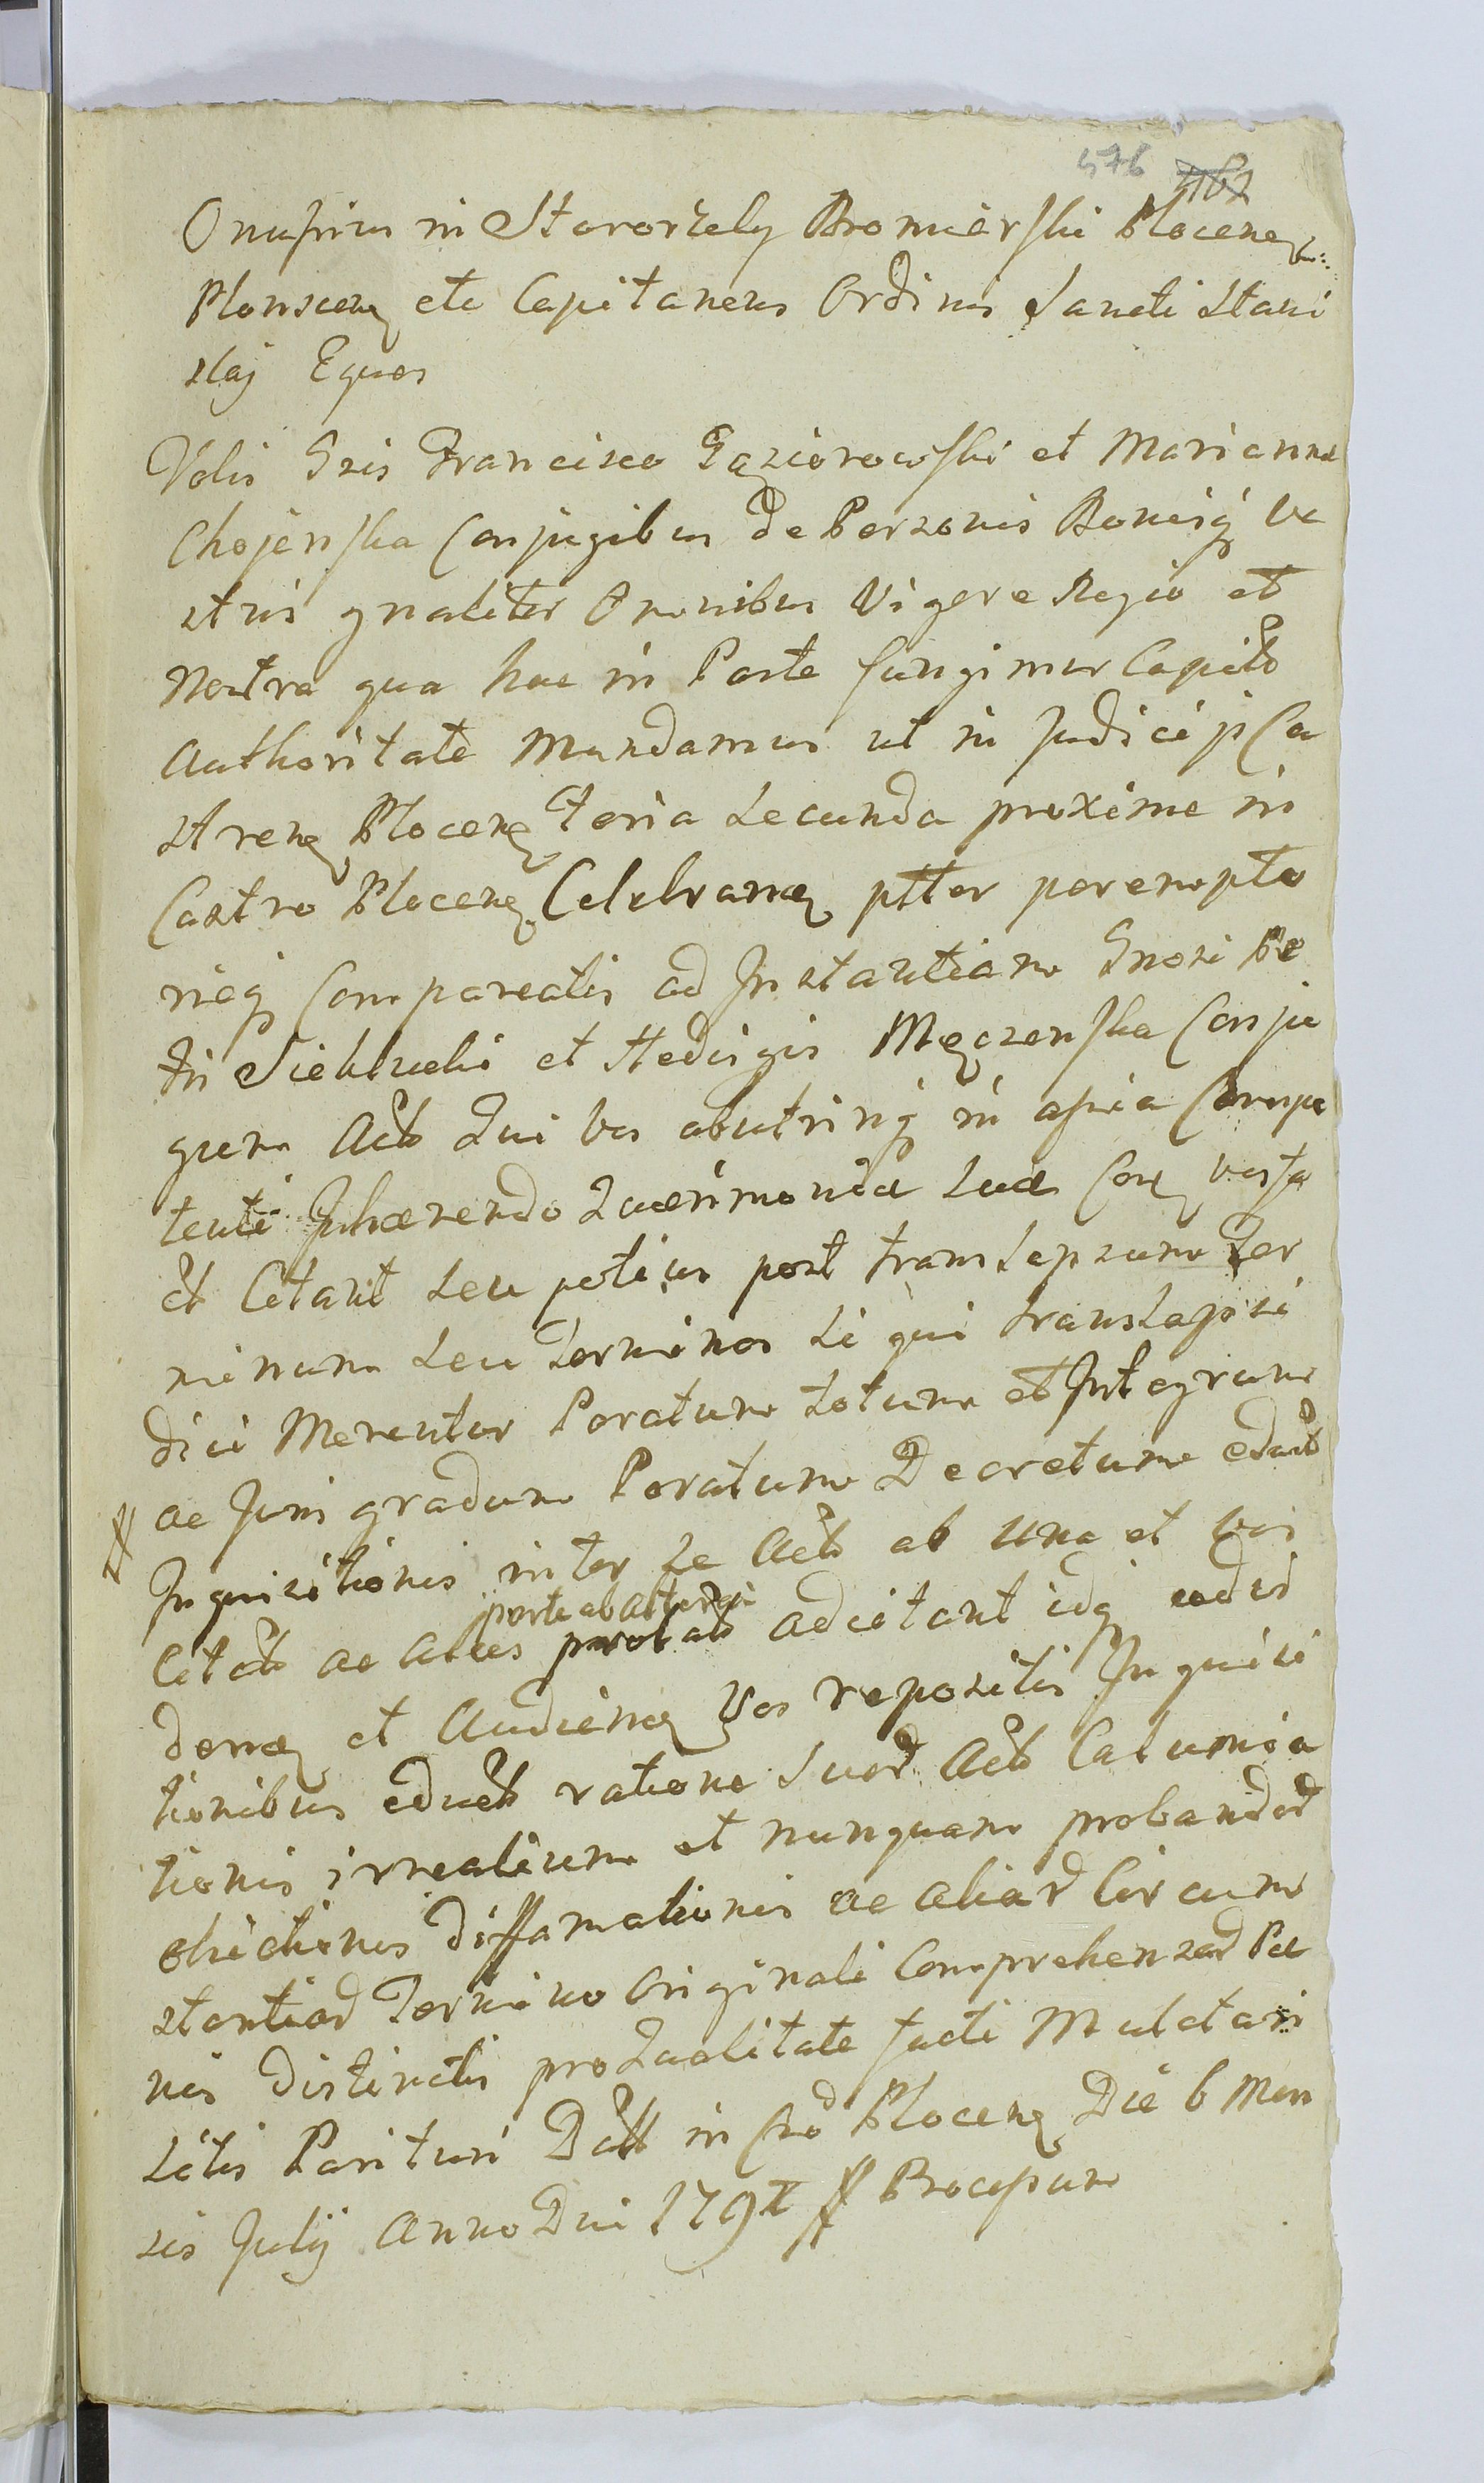 576 1167
Onufrius in Staroźreby Bromierski Plocenꝫ
Plonscenꝫ etc Capitaneus Ordinis Sancti Stani
slaj Eques
Vobis Gsis Francisco Gąsiorowski et Marianna
Chojenska Conjugibus de Personis Bonisq́ ve
stris gnaliter Omnibus Vigore Regio et
Nostra qua hac in Parte fungimur Capitli
Authoritate Mandamus ut in Judicijs Ca
strenꝫ Plocenꝫ Feria Secunda proxime in
Castro Plocenꝫ Celebranꝫ ptter perempto
rieq́ Compareatis ad Instantiam Gnosi Pe
tri Siebłucki et Hedvigis Męczenska Conju
gum Actt Qui Vos abutrinq́ in assia Compe
tenti Inhærendo Quærimoniæ suæ Corꝫ
Citant seu potius post translapsum Ter
minum seu Terminos si qui translapsi
dici Merentur Paratum totum et Integrum
ac Juris gradum Paratum Decretum
Inquisitionis inter se Actt ab una et vos
Citatt ac alios parte ab altera adcitant idq́
denꝫ et Audienꝫ Vos repositis Inquisi
tionibus educt ratione suor Actt Calumnia
tionis irrealium et nunquam probandor
obiectionis diffamationis ac aliar Circum
stantiar Termino Originali Comprehensar Pæ
nis distinctis pro Qualitate facti Mulctari
sitis Parituri Datt in Cro Plocenꝫ Die 6 Men
sis Julij Anno Dni 1791 ff Procopum